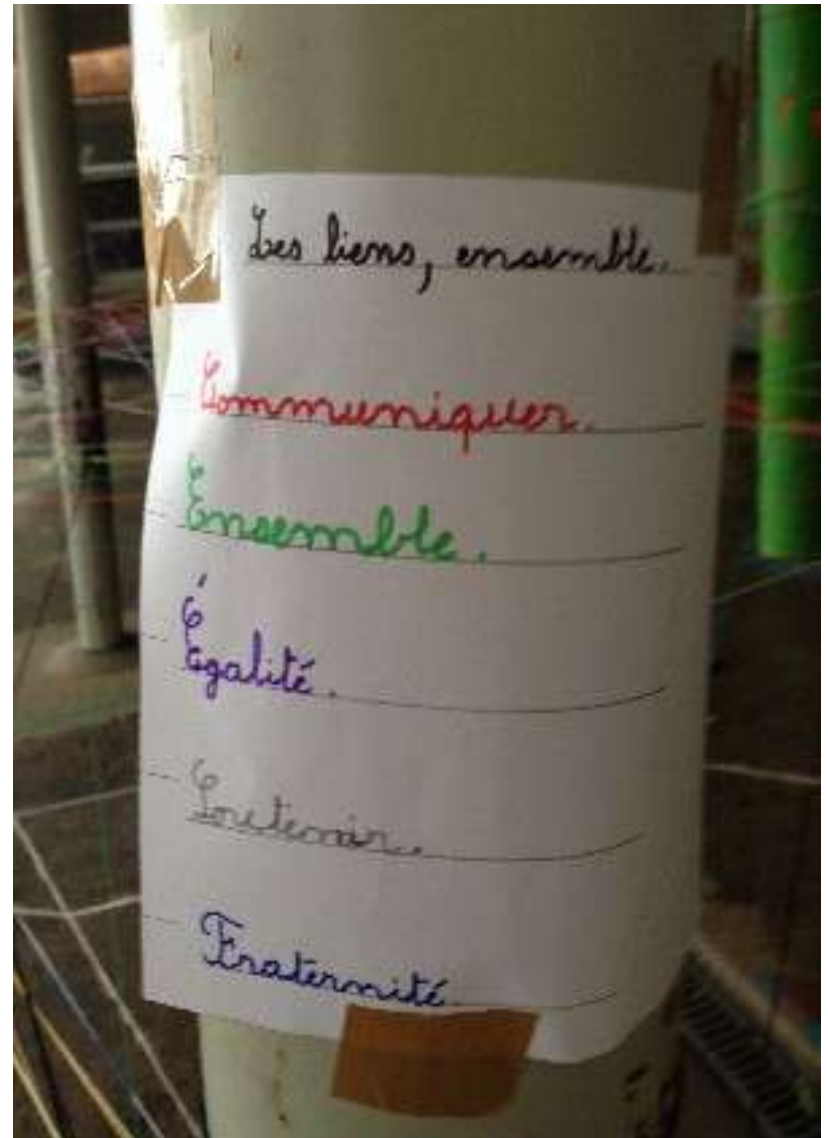 Les liens, ensemble.
Communiquer.
Ensemble.
Égalité.
Soutenir.
Fraternité